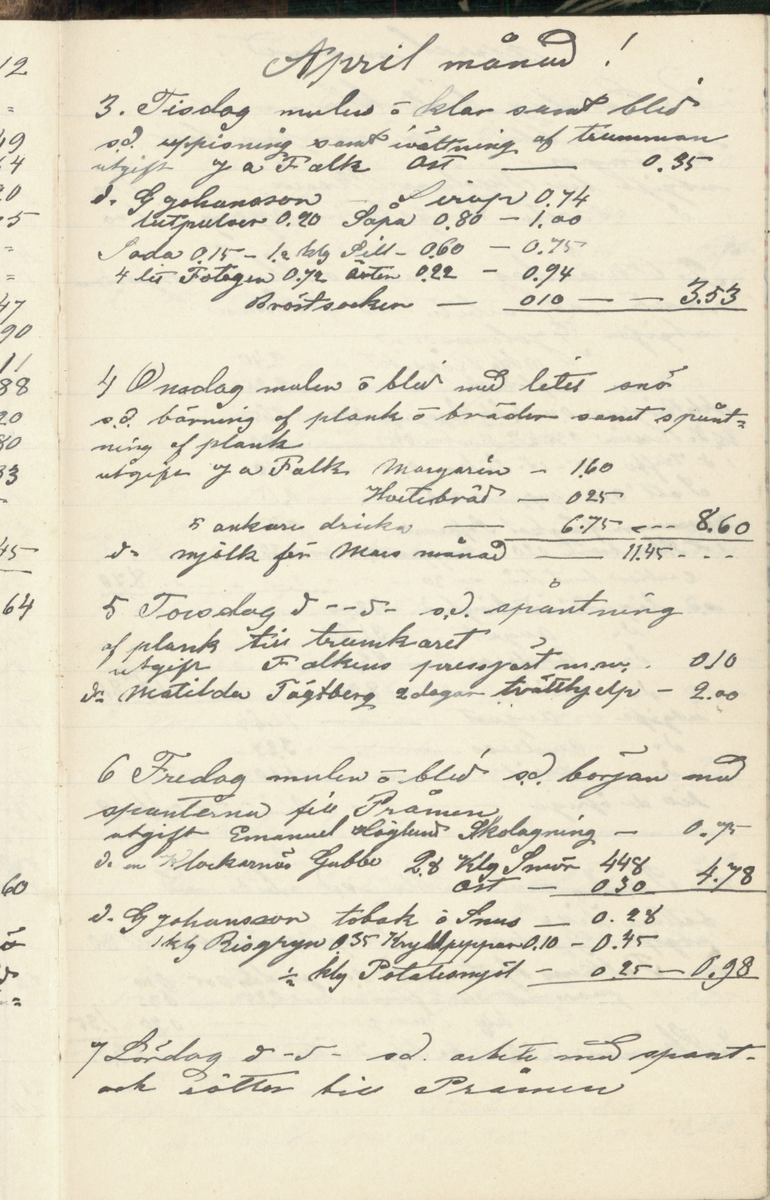 April månad!
3. Tisdag mulen ō klar samt blid
s.d. uppisning samt ivättning af trumman
utgift J a Falk Ost — 0.35
d. G Johansson Sirap 0.74
lutpulver 0.20 Såpa 0.80 — 1.00
Soda 0.15 - 1.2 klg Sill - 0.60 — 0.75
4 lit Fotogen 0.72 ärter 0.22 — 0.94
Bröstsocker — 010 — — 3.53
4 Onsdag mulen ō blid med litet snö
s.d. bärning af plank ō bräder samt spånt=
ning af plank
utgift J a Falk Margarin - 1.60
Hvetebröd — 025
5 ankare dricka — 6.75 - - - 8.60
d- mjölk för Mars månad — 11.45 - - -
5 Torsdag d - - s - s.d. spåntning
af plank till trumkaret
utgift Falkens pressjäst m.m. . 010
do Matilda Tägtberg 2 dagar tvätthjelp — 2.00
6 Fredag mulen ō blid s.d. början med
spanterna till Pråmen
utgift Emanuel Höglund Skolagning — 0.75
d. en Klockarnäs Gubbe 2.8 Klg Smör 448
Ost — 030 4.78
d. G Johansson tobak ō Snus — 0.28
1 klg Risgryn 0.35 Kryddpeppar 0.10 - 0.45
½ klg Potatismjöl — 0.25 — 0.98
7 Lördag d - s - s.d. arbete med spant-
och rötter till Pråmen
12
=
20
=
=
47
90
11
88
20
80
33
45
64
60